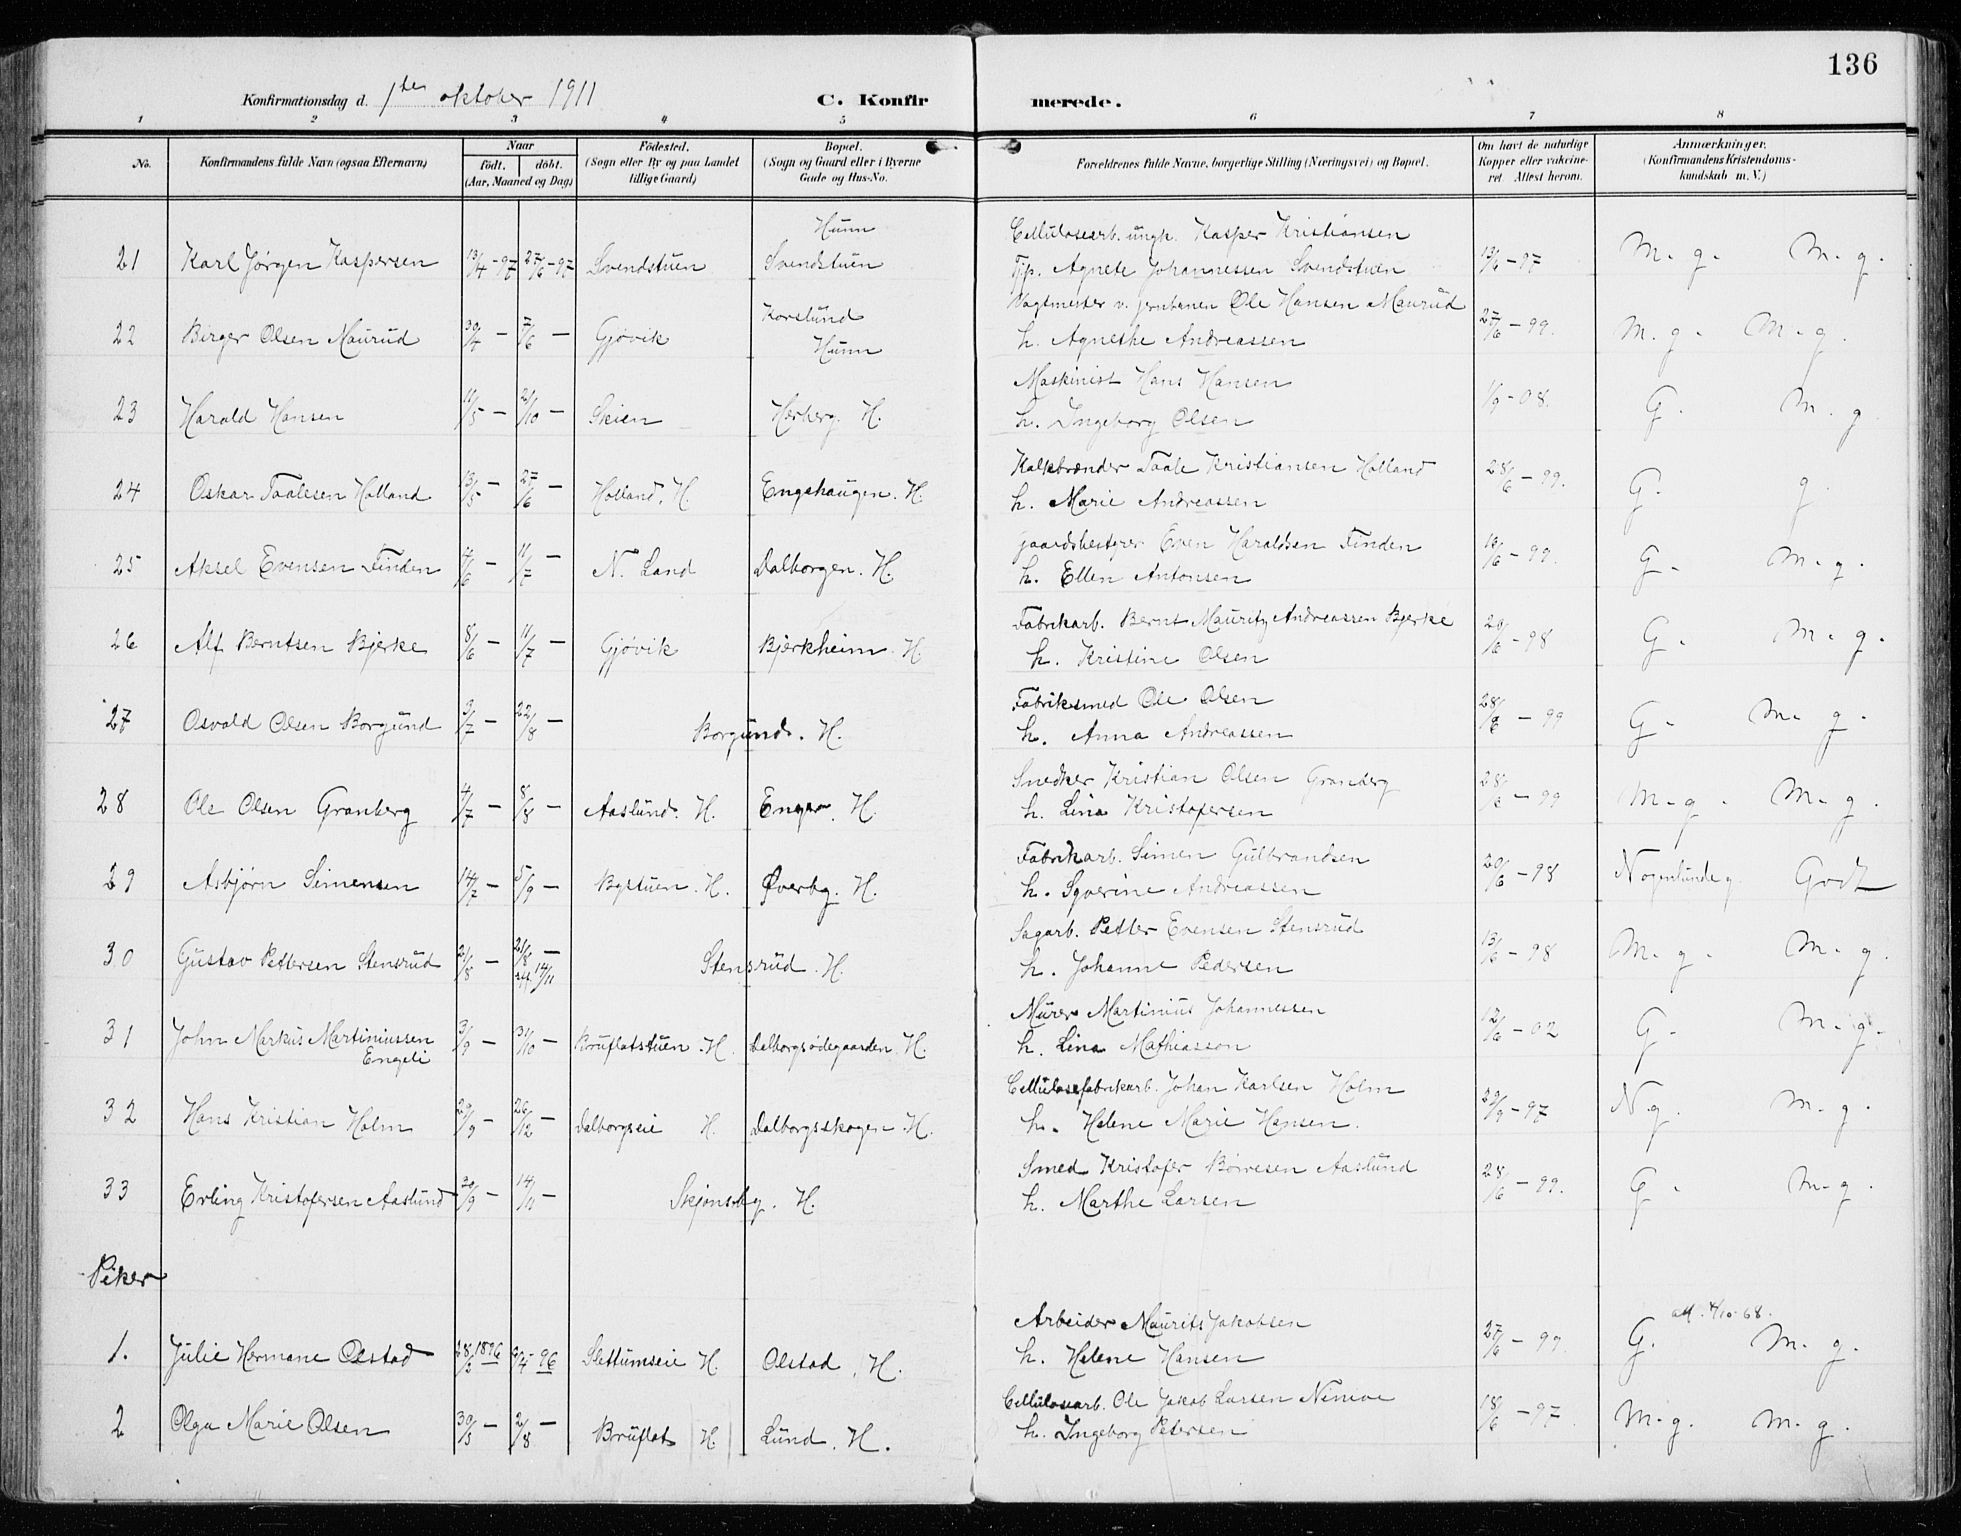 136
Konfirmationsdag d. 1ste oktober 1911 C. Konfirmerede.
1 2 3 4 5 6 7 8
No. Konfirmandens fulde Navn (ogsaa Efternavn) Naar födt. döbt. (Aar, Maaned og Dag) Födested. (Sogn eller By og paa Landet tillige Gaard) Bopæl. (Sogn og Gaard eller i Byerne Gade og Hus-No. Forældrenes fulde Navne, borgerlige Stilling (Næringsvei) og Bopæl. Om havt de naturlige Kopper eller vakcineret. Attest herom. Anmærkninger. (Konfirmandens Kristendomskundskab m. V.)
Hunn Cellulosearb. ungk. Kasper Kristiansen
21 Karl Jørgen Kaspersen 13/4-97 27/6-97 Svendstuen Svendstuen Tjp. Agnete Johannessen Svendstuen 13/6-97 M. g. M. g.
Korslund Vagtmester v. jernbanen Ole Hansen Maurud
22 Birger Olsen Maurud 30/4 — 7/6 — Gjøvik Hunn h. Agnethe Andreassen 27/6-99. M. g. M. g.
Maskinist Hans Hansen
23 Harald Hansen 11/5 — 2/10 — Skien Herberg. H. h. Ingeborg Olsen 1/9-08. G. M. g
Kalkbrænder Taale Kristiansen Holland
24 Oskar Taalesen Holland 13/5 — 27/6 — Holland. H. Engehaugen. H. h. Marie Andreassen 28/6-99. G. g
Gaardsbestyrer Even Haraldsen Finden
25 Aksel Evensen Finden 4/6 — 11/7 — N. Land Dalborgen. H. h. Ellen Antonsen 18/6-99. G. M. g.
Fabrikarb. Bernt Mauritz Andreassen Bjerke
26 Alf Berntsen Bjerke 8/6 — 11/7 — Gjøvik Bjerkheim. H h. Kristine Olsen 20/6-98 G. M. g.
Fabriksmed Ole Olsen
27 Osvald Olsen Borgund 3/7 — 22/8 — Borgund. H. h. Anna Andreassen 28/6-99 G. M. g.
Snedker Kristian Olsen Granberg
28 Ole Olsen Granberg 4/7 — 8/8 — Aaslund. H. Enger. H. h. Lina Kristofersen 28/6-99 M. g. M. g.
Fabrikarb. Simen Gulbrandsen
29 Asbjørn Simensen 14/7 — 5/9 — Bystuen. H. Øverby. H. h. Syverine Andreassen 20/6-98 Nogenlunde g. Godt
Sagarb. Petter Evensen Stensrud
30 Gustav Pettersen Stensrud 21/8 — 21/8 — 14/11 Stensrud. H. h. Johanne Pedersen 13/6-98 M. g. M. g.
Murer Martinius Johannessen
31 John Markus Martiniussen 3/9 — 31/10 — Bruflatstuen. H. Dalborgsødegaarden. H. h. Lina Mathiasson 12/6-02 G. M. g.
Engeli
Cellulosefabrikarb. Johan Karlsen Holm
32 Hans Kristian Holm 29/9 — 26/12 — Dalborgseie H. Dalborgsskogen H. h. Helene Marie Hansen. 29/9-97 Ng. M. g.
Smed Kristofer Børresen Aaslund
33 Erling Kristofersen Aaslund 30/9 — 14/11 — Skjønsby. H. h. Marthe Larsen 28/6-99. G. M. g.
Piker
Arbeider Maurits Jakobsen att. 4/10-68.
1. Julie Hermane Olstad 28/2 1896 4-96 Slettumseie H. Olstad. H. h. Helene Hansen 27/6-99. G. M. g.
Cellulosearb. Ole Jakob Larsen
2 Olga Marie Olsen 30/3 — 2/8 — Bruflat H Lund. H. h. Ingeborg Petersen 18/6-97. M. g. M. g.